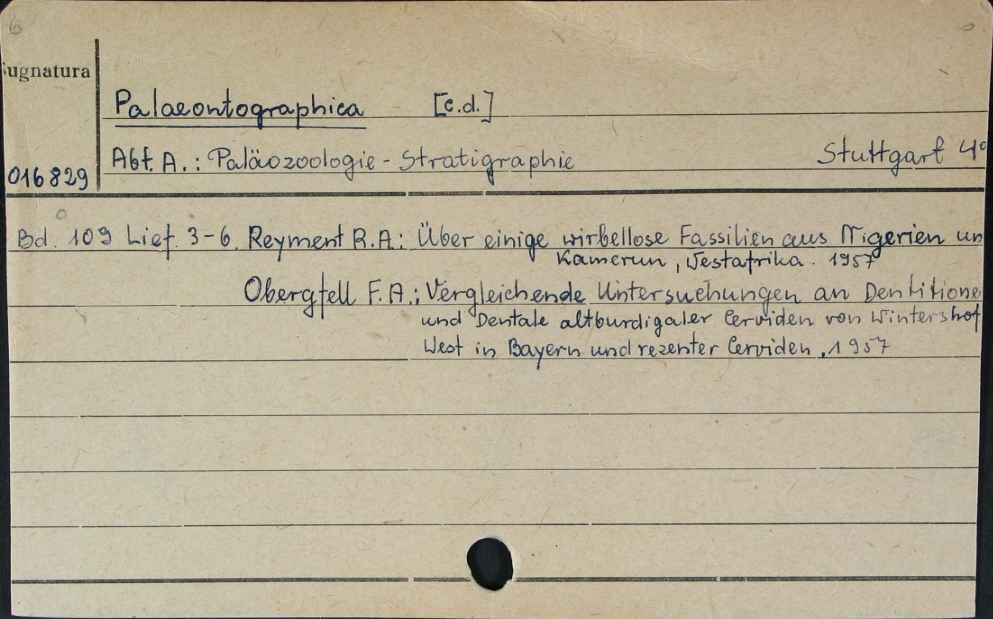 6
ugnatura
Palaeontographica [c.d.]
016829 Abt. A.: Paläozoologie - Stratigraphie Stuttgart 4°
Bd. 109 Lief. 3-6. Reyment R.A: Über einige wirbellose Fassilien aus Nigerien un
Kamerun, Westafrika. 1957
Obergfell F.A.: Vergleichende Untersuchungen an Dentitione
und Dentale altburdigaler Cerviden von Wintershof
West in Bayern und rezenter Cerviden. 1957